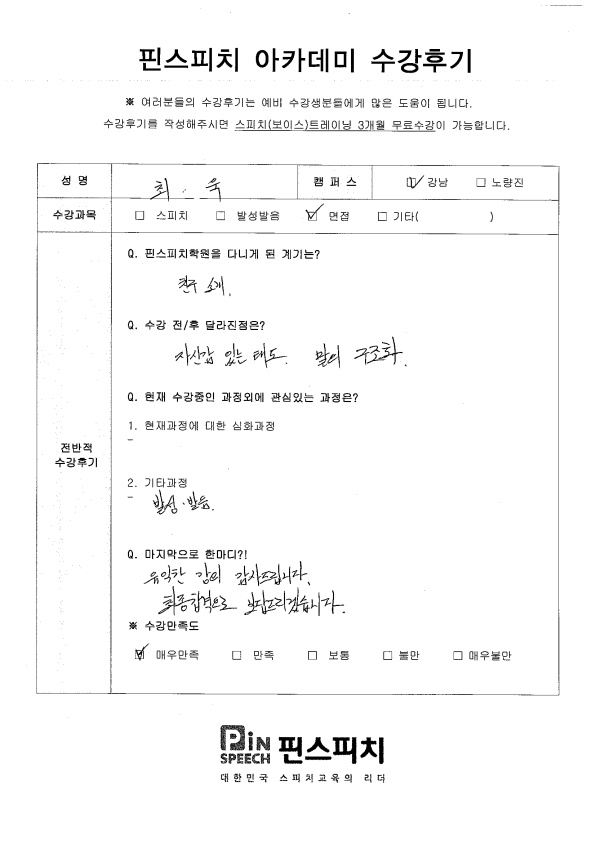 핀스피치 아카데미 수강후기
※ 여러분들의 수강후기는 예비 수강생분들에게 많은 도움이 됩니다.
수강후기를 작성해주시면 스피치(보이스)트레이닝 3개월 무료수강이 가능합니다.
성 명 최 . 욱 캠 퍼 스 ☑ 강남 □ 노량진
수강과목 □ 스피치 □ 발성발음 ☑ 면접 □ 기타( )
전반적
수강후기
Q. 핀스피치학원을 다니게 된 계기는?
친구 소개.
Q. 수강 전/후 달라진점은?
자신감 있는 태도. 말의 구조화.
Q. 현재 수강중인 과정외에 관심있는 과정은?
1. 현재과정에 대한 심화과정
-
2. 기타과정
- 발성·발음.
Q. 마지막으로 한마디?!
유익한 강의 감사드립니다.
최종합격으로 보답드리겠습니다.
※ 수강만족도
☑ 매우만족 □ 만족 □ 보통 □ 불만 □ 매우불만
PiN SPEECH 핀스피치
대한민국 스피치교육의 리더